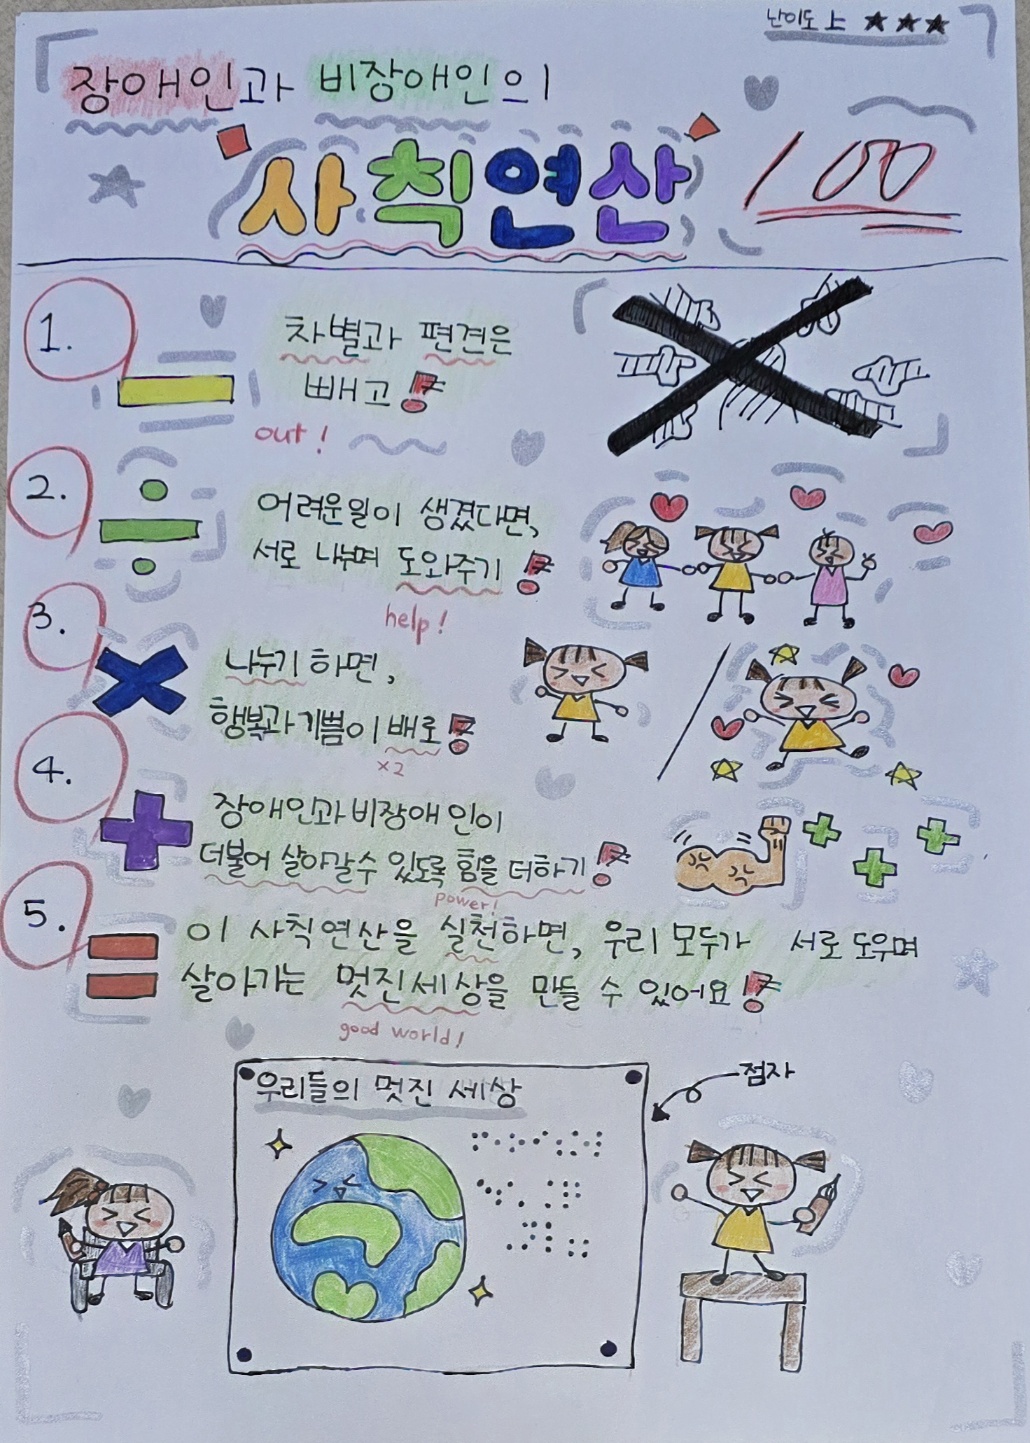 난이도 上 ★★★
장애인과 비장애인의
사칙연산
100
1.
차별과 편견은
빼고!
out!
2.
어려운일이 생겼다면,
서로 나누며 도와주기!
help!
3.
나누기 하면,
행복과 기쁨이 배로!
x2
4.
장애인과 비장애인이
더불어 살아갈 수 있도록 힘을 더하기!
power!
5.
이 사칙연산을 실천하면, 우리 모두가 서로 도우며
살아가는 멋진 세상을 만들 수 있어요!
good world!
우리들의 멋진 세상
점자